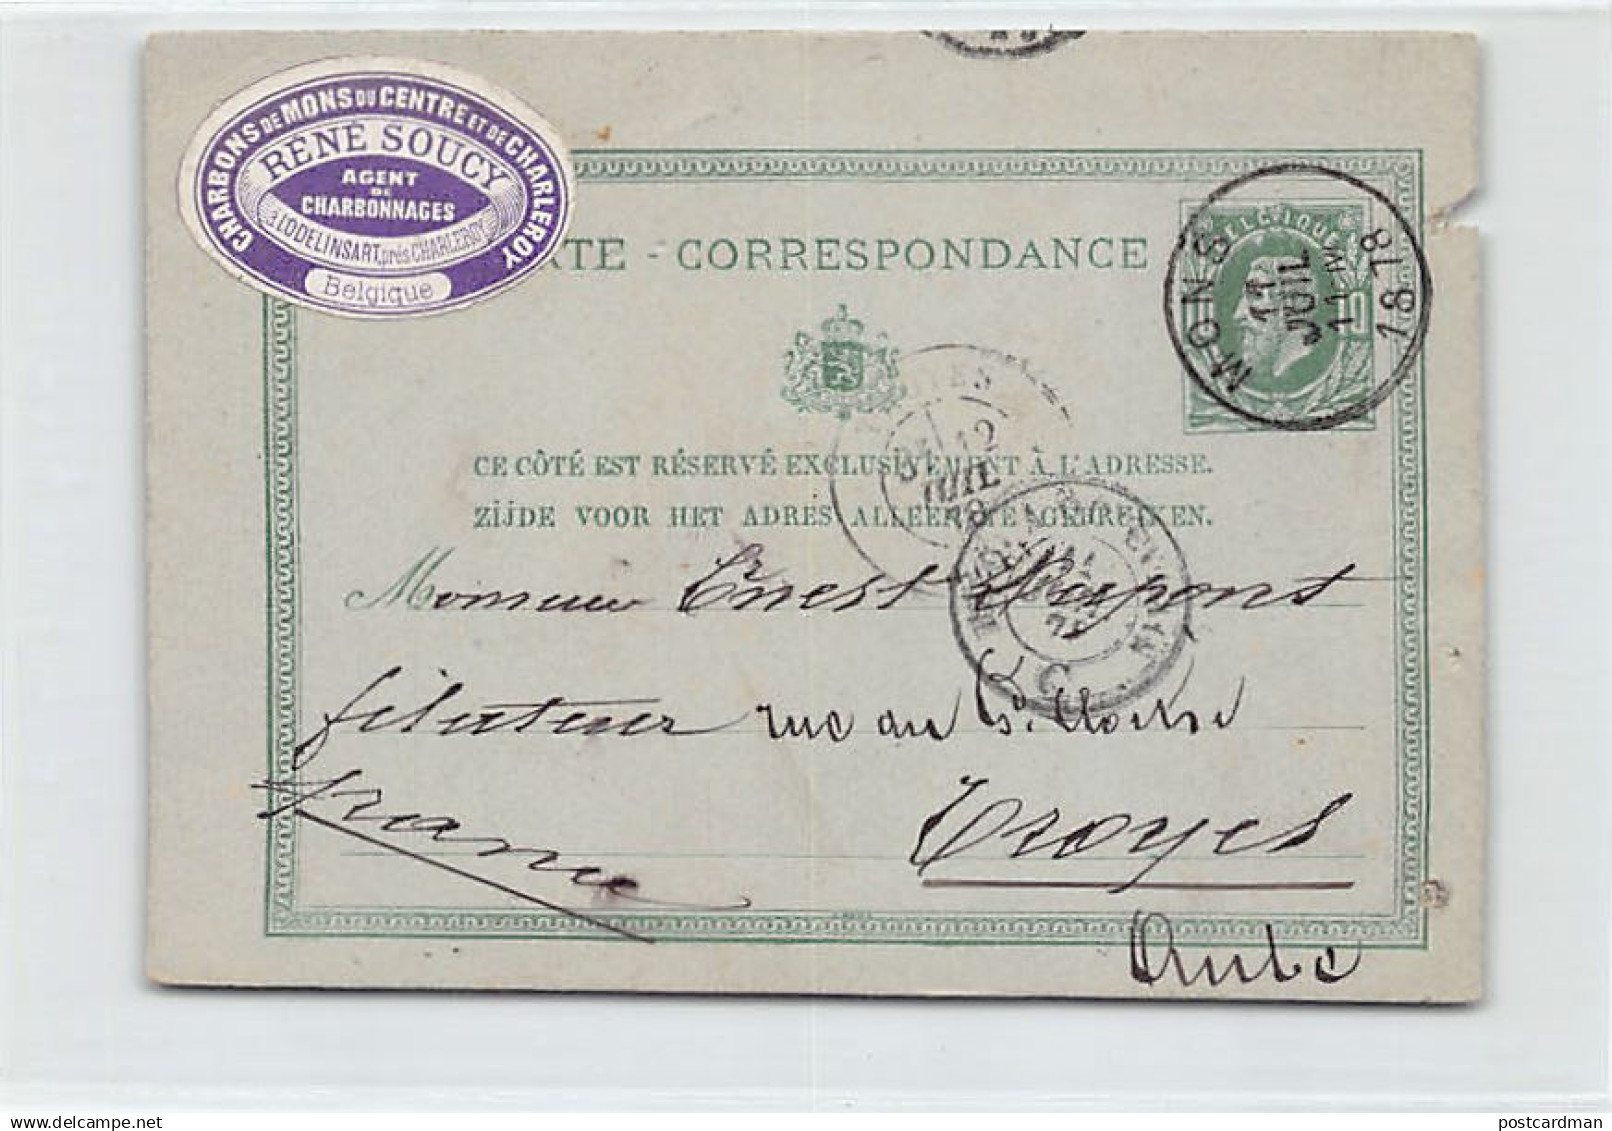 CHARBONS DE MONS DU CENTRE ET DE CHARLEROY
RÉNÉ SOUCY
AGENT
DE
CHARBONNAGES
à LODELINSART, près CHARLEROY
Belgique
RTE - CORRESPONDANCE
BELGIQUE
10
MONS
11
JUIL
11-M
1878
CE CÔTÉ EST RÉSERVÉ EXCLUSIVEMENT À L'ADRESSE.
ZIJDE VOOR HET ADRES ALLEEN TE GEBRUIKEN.
12
JUIL
Monsieur Ernest Dupont
filateur rue du
France
Troyes
Aube
postcardman